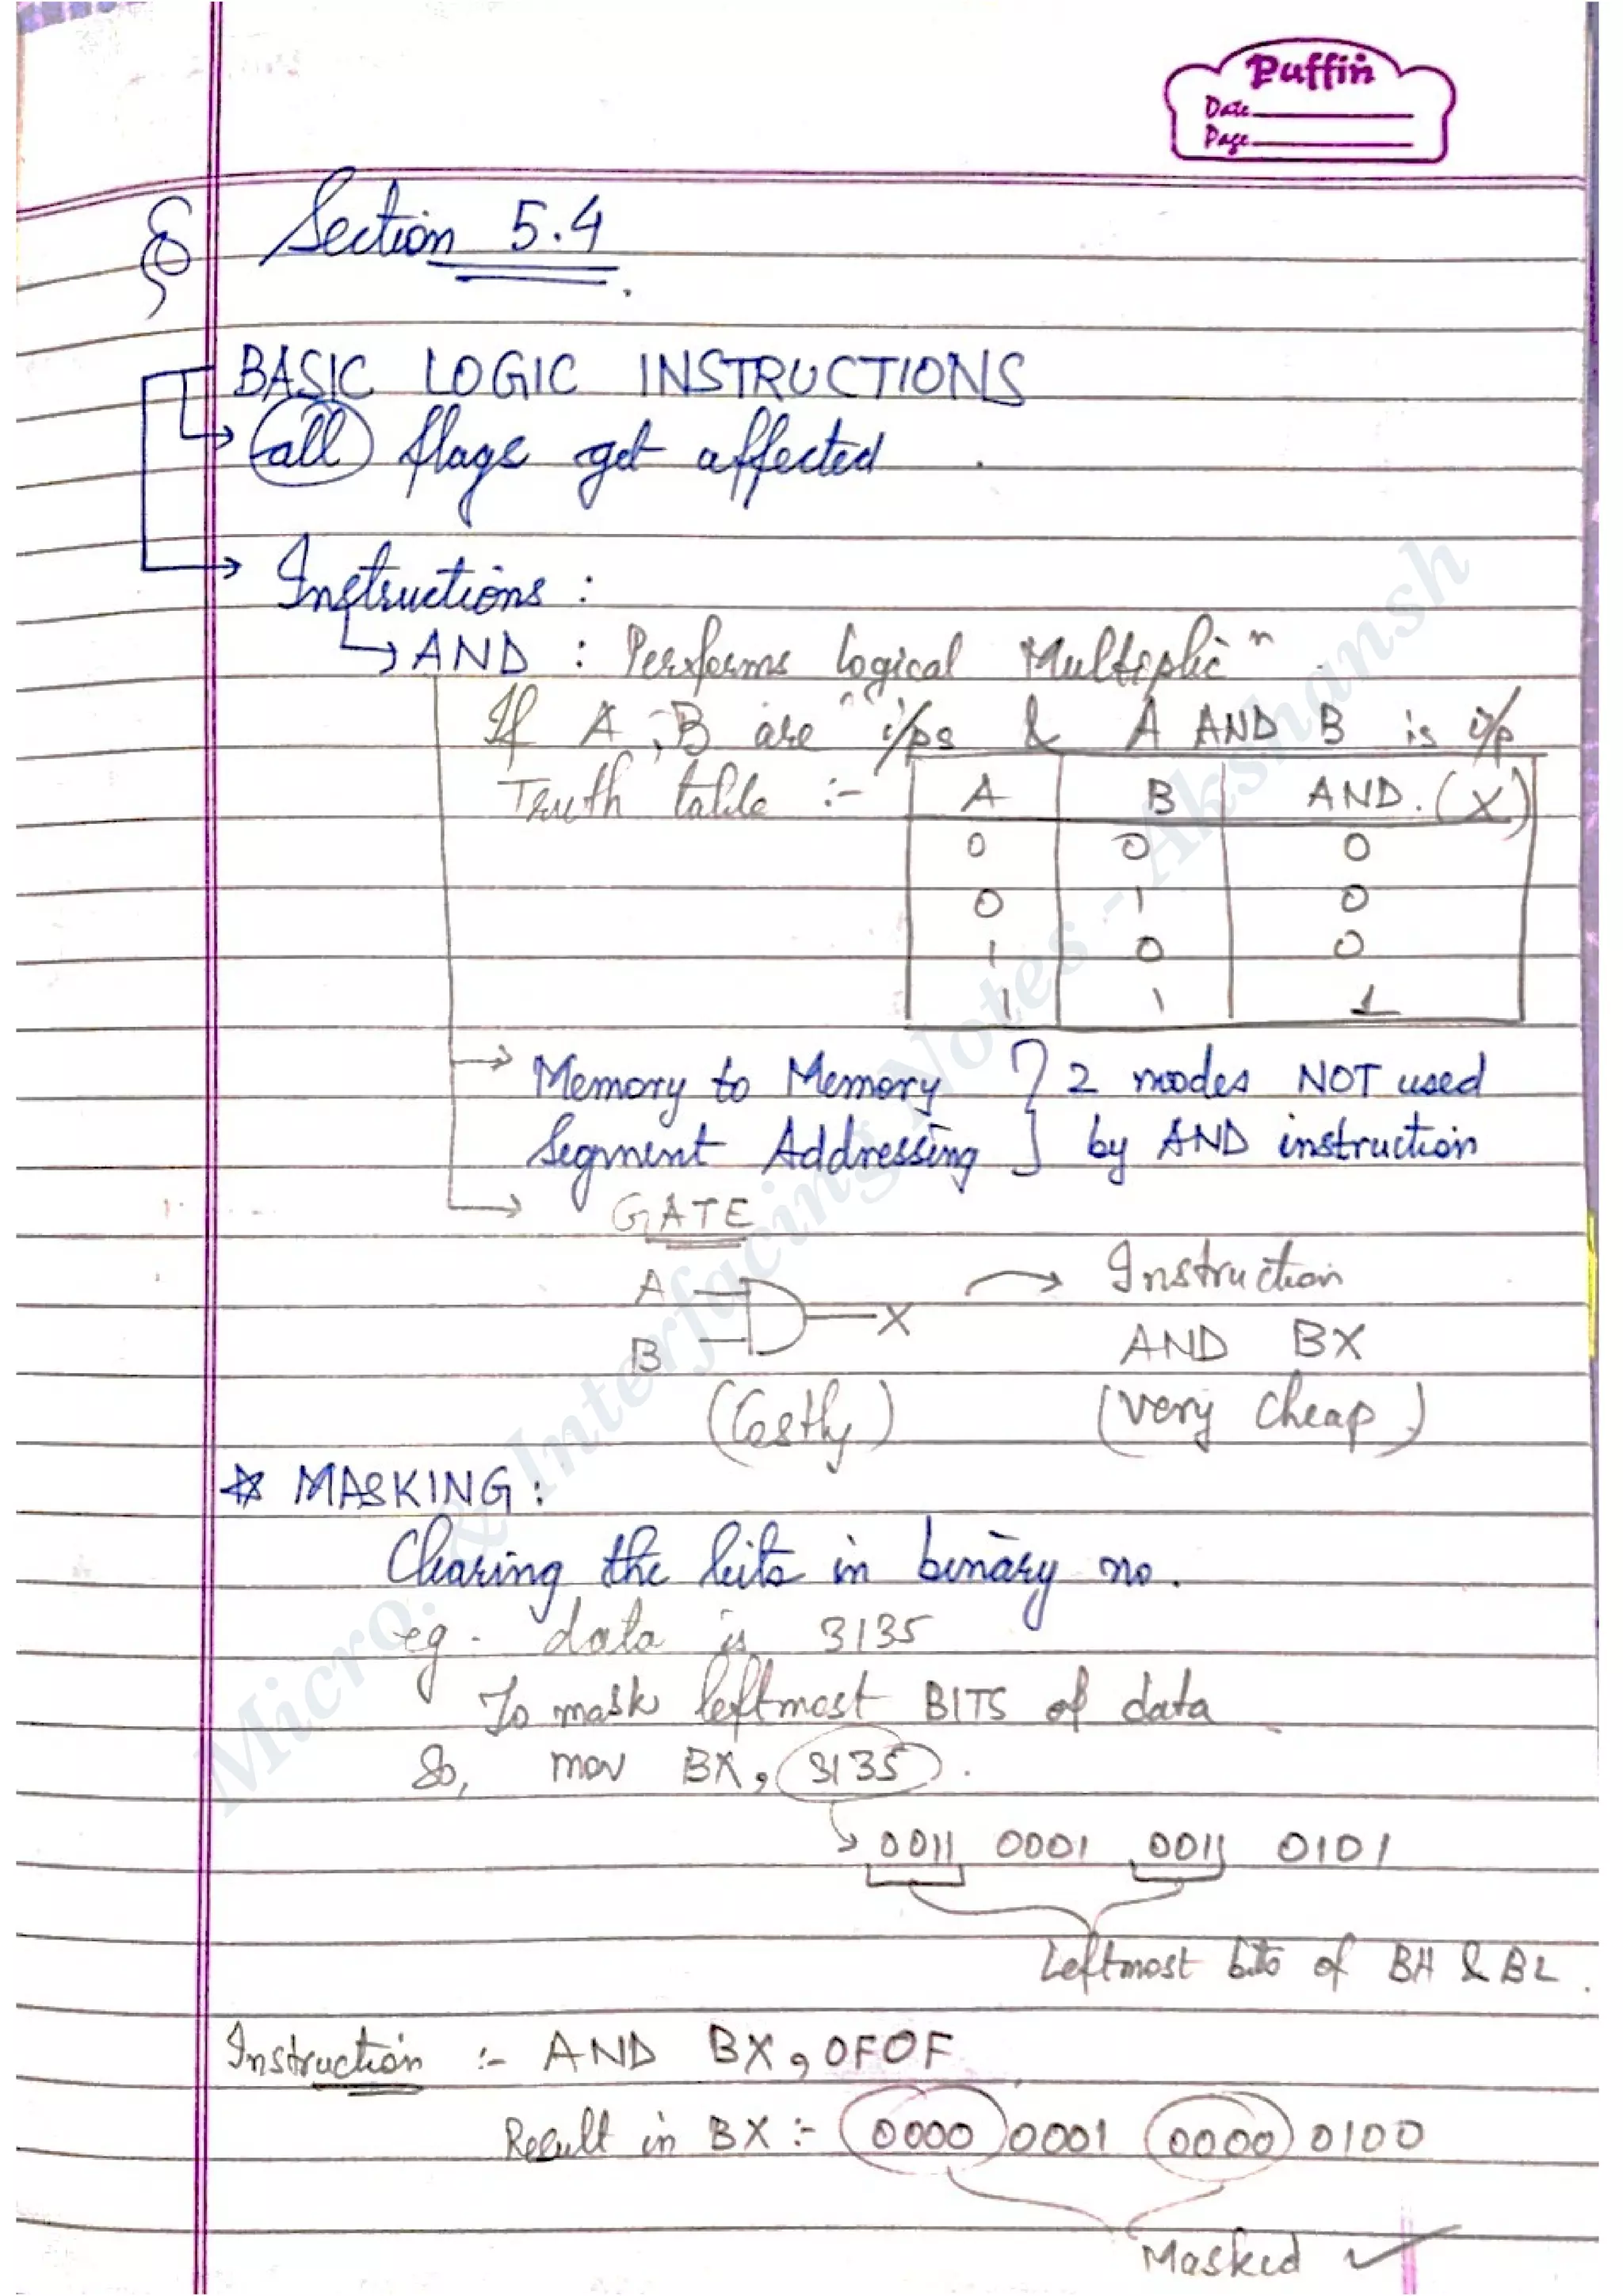 Puffin
Date
Page
§ Section 5.4
BASIC LOGIC INSTRUCTIONS
all flags get affected
Instructions :
AND : Performs logical Multiplicⁿ
If A, B are i/ps & A AND B is i/p
Truth table :-
A B AND. (X)
0 0 0
0 1 0
1 0 0
1 1 1
Memory to Memory } 2 modes NOT used
Segment Addressing } by AND instruction
GATE
A
B
X
Instruction
AND BX
(Costly) (very cheap)
☆ MASKING :
Clearing the bits in binary no.
eg. data is 3135
To mask leftmost BITS of data
So, mov BX, 3135.
0011 0001 0011 0101
Leftmost bits of BH & BL.
Instruction :- AND BX, 0F0F
Result in BX :- 0000 0001 0000 0100
Masked ✓
Micro. & Interfacing Notes - Akshansh